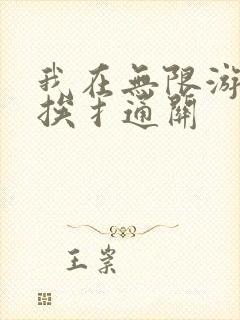 我在無限游
挨才通關
王業